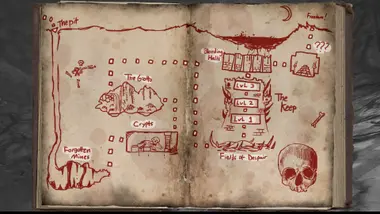 The pit
The Gate
Crypts
Forgotten
Mines
Bleeding
Halls
???
Lvl 3
Lvl 2
Lvl 1
The
Keep
Fields of Despair